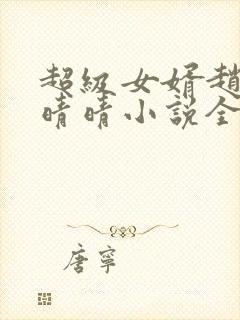 超級女婿趙
晴晴小説全
唐寧